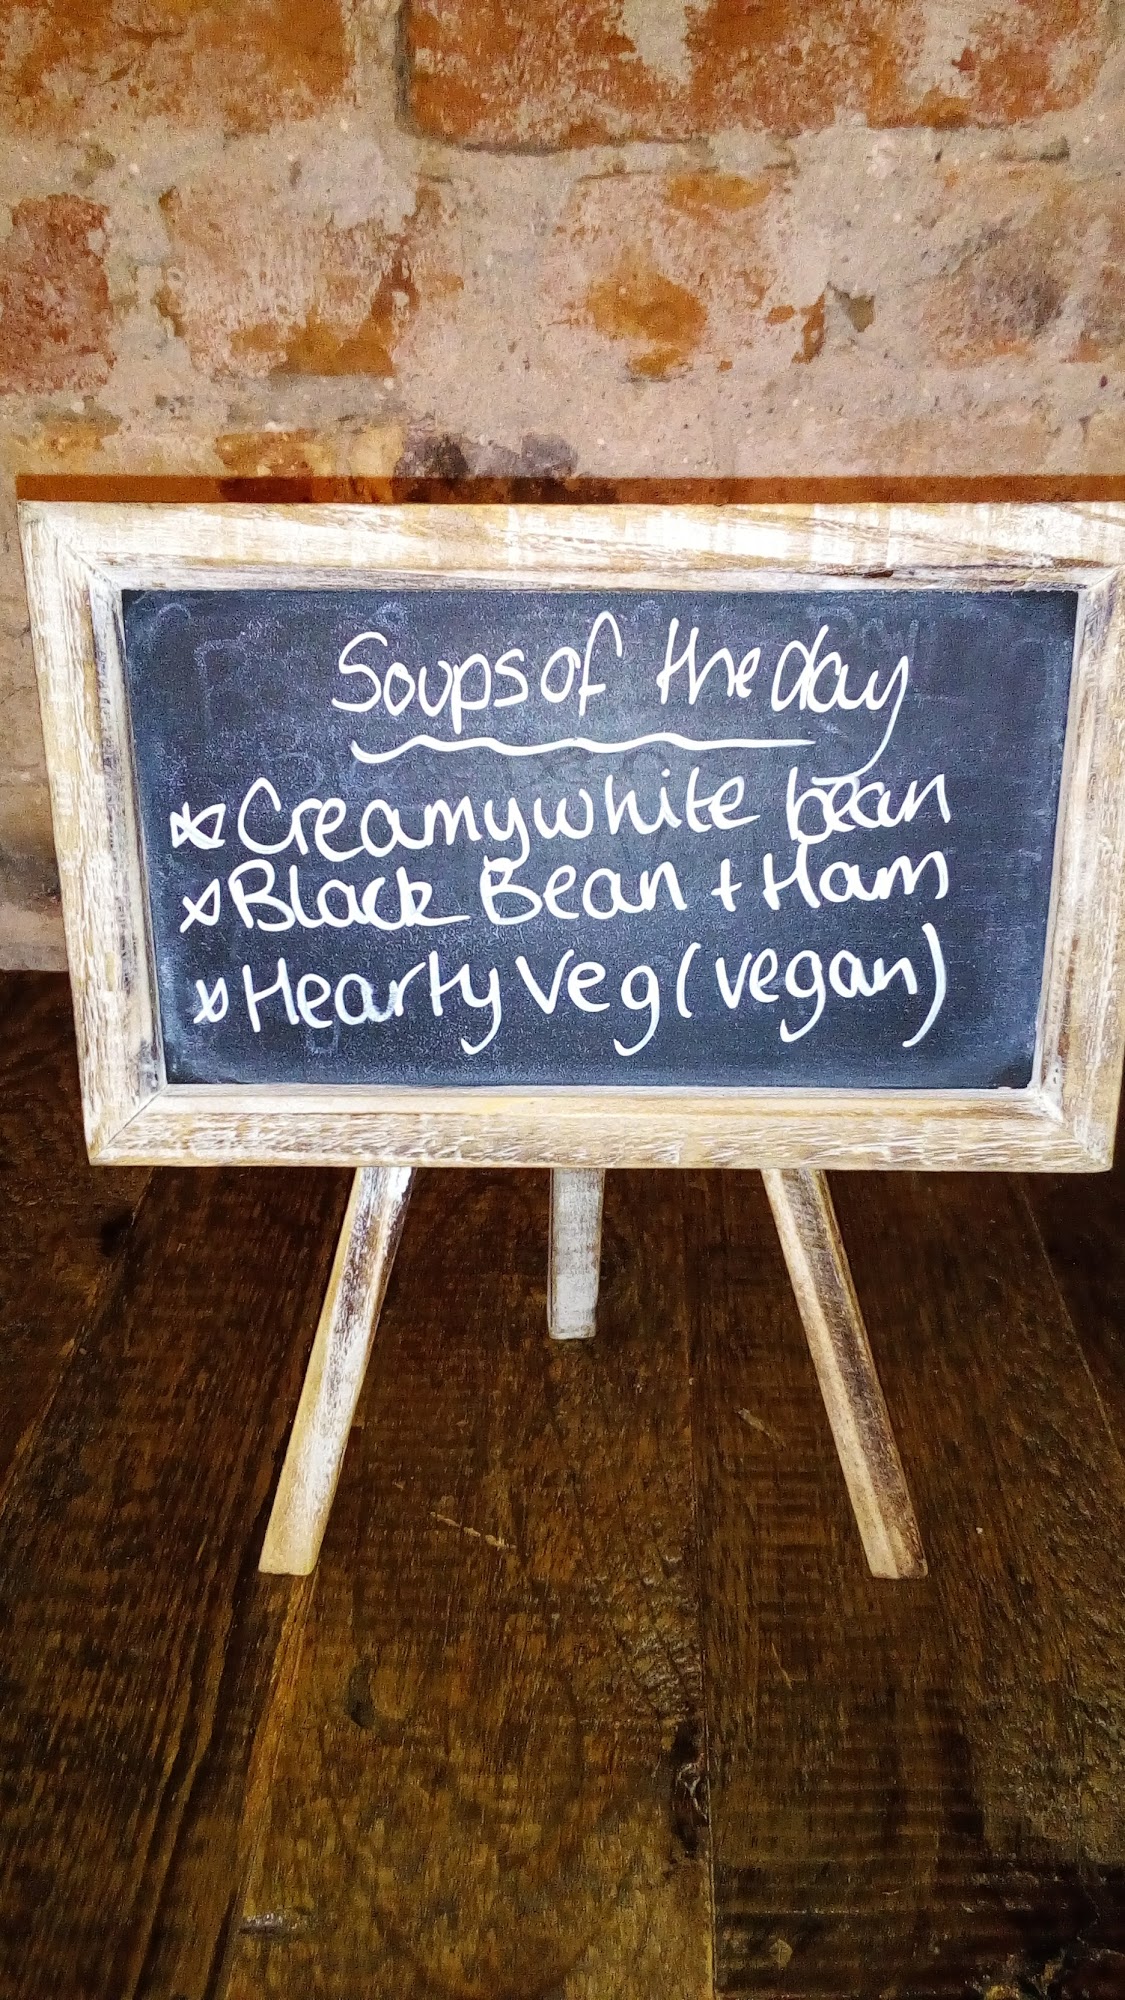 Soups of the day
* Creamy white bean
* Black Bean + Ham
* Hearty Veg (vegan)